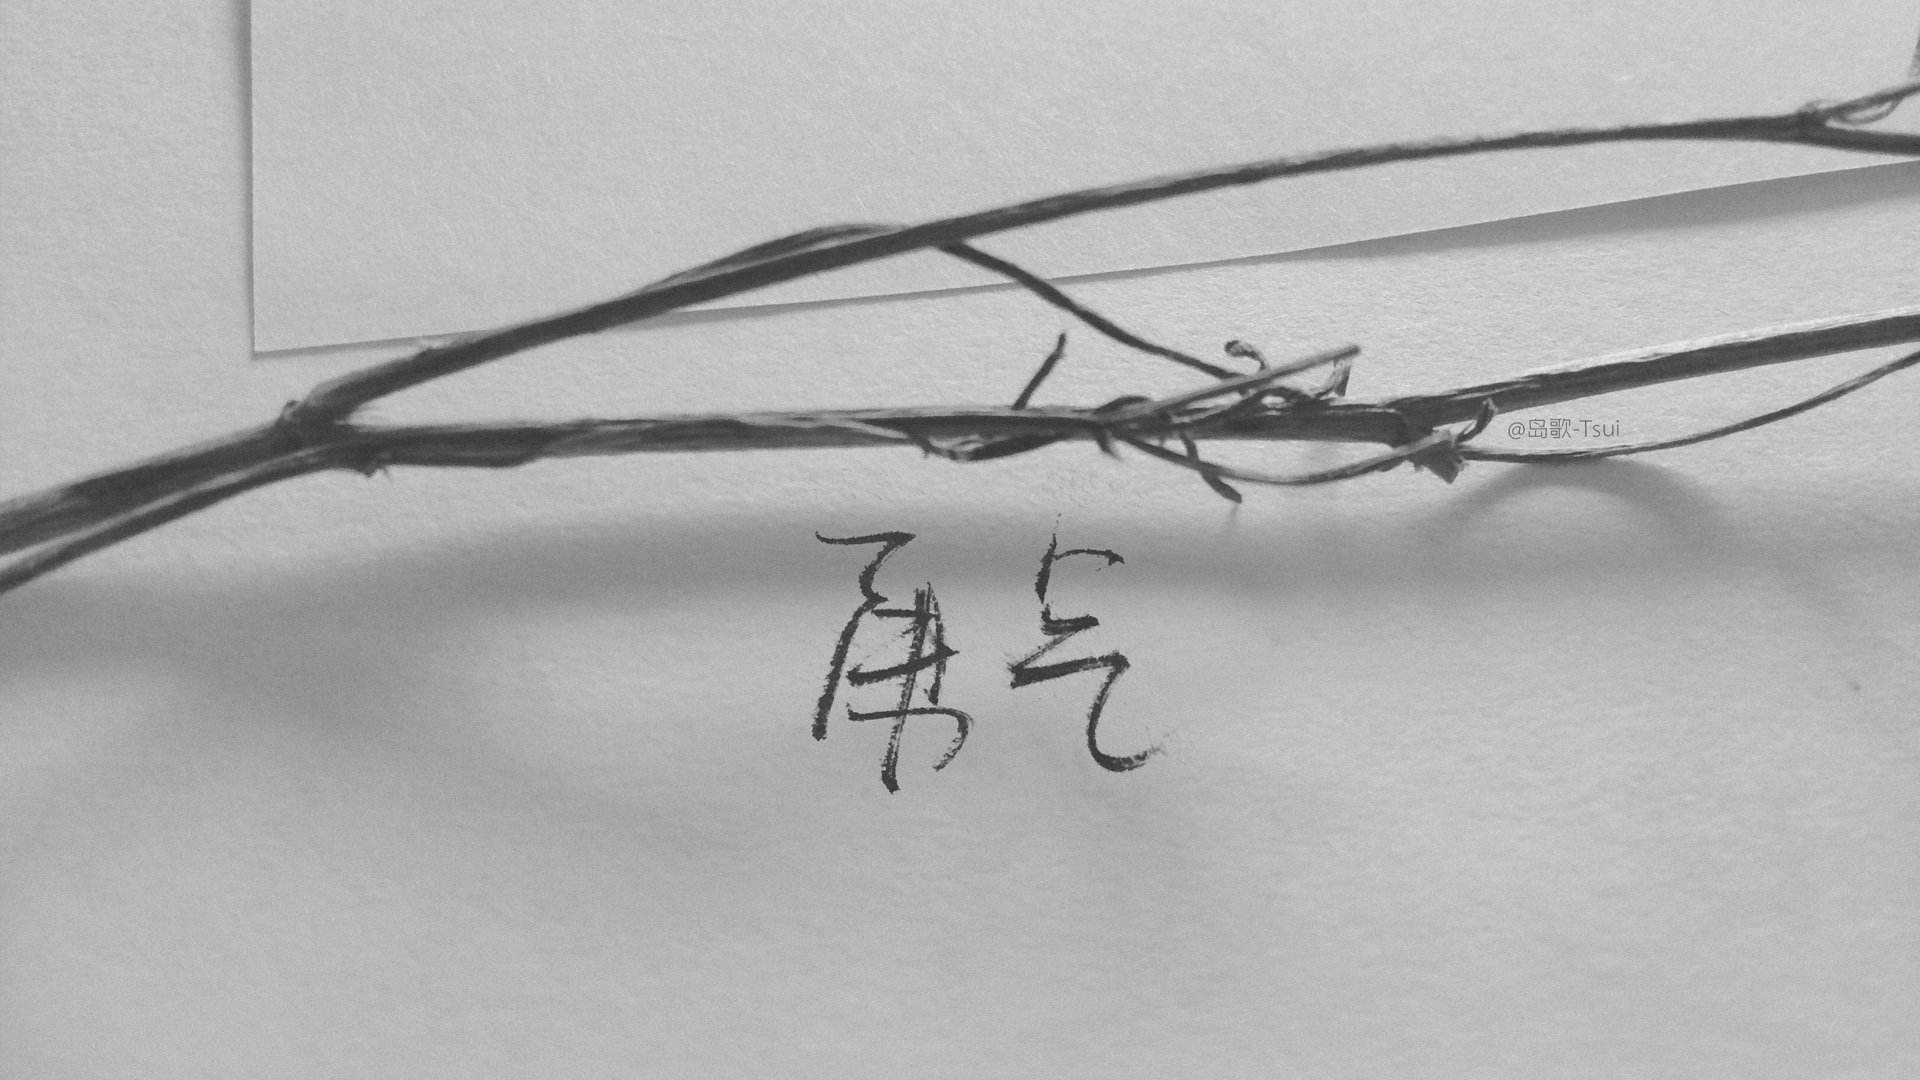 @岛歌-Tsui
勇气